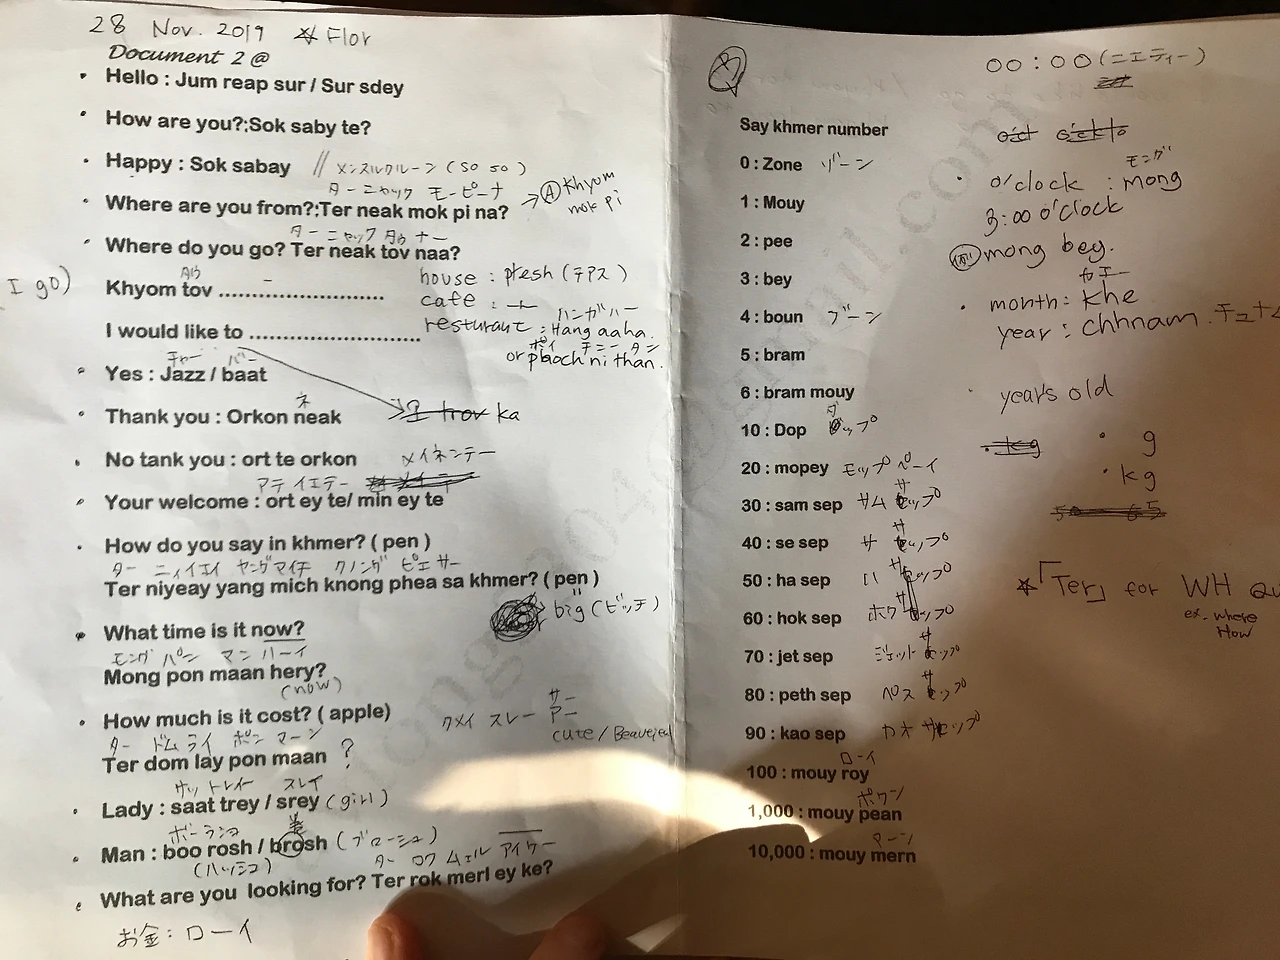 28 Nov. 2019 ☆ Flor
Document 2 @
• Hello : Jum reap sur / Sur sdey
• How are you?:Sok saby te?
• Happy : Sok sabay // メンスルクルーン (so so)
ターニャック モーピーナ
• Where are you from?:Ter neak mok pi na? → Ⓐ Khyom mok pi
ターニャック タウ ナー
• Where do you go? Ter neak tov naa?
タウ
I go) Khyom tov ..............................
house : ptesh (テアス)
cafe : ー
I would like to ..............................
ハンガハー
resturant : Hang aaha.
ポイ チニー タン
or ploch ni than.
チャー バー
• Yes : Jazz / baat
ネ
• Thank you : Orkon neak
trov ka
• No tank you : ort te orkon メイネンテー
アテイエテー
• Your welcome : ort ey te/ min ey te
• How do you say in khmer? ( pen )
ター ニィイエイ ヤングマイチ クノング ピエサー
Ter niyeay yang mich knong phea sa khmer? ( pen )
big (ビッチ)
• What time is it now?
モング パン マン ハーイ
Mong pon maan hery?
(now)
• How much is it cost? ( apple)
クメイ スレー サー アー
cute /
ター ドムライ ポンマーン
Ter dom lay pon maan ?
サットレイー スレイ
• Lady : saat trey / srey (girl)
• Man : boo rosh / brosh (ブローシュ)
(ハッシュ)
ター ロク ムェル アイケー
• What are you looking for? Ter rok merl ey ke?
お金：ローイ
00:00 (ニエティー)
Say khmer number
0 : Zone ゾーン
1 : Mouy
2 : pee
3 : bey
4 : boun ブーン
5 : bram
6 : bram mouy
10 : Dop ダップ
20 : mopey モップペーイ
30 : sam sep サムサップ
40 : se sep サ サップ
50 : ha sep ハ サップ
60 : hok sep ホクサップ
70 : jet sep ジェットサップ
80 : peth sep ペスサップ
90 : kao sep カオサップ
ローイ
100 : mouy roy
ポワン
1,000 : mouy pean
マーン
10,000 : mouy mern
モング
• o'clock : mong
3:00 o'clock
mong bey.
カエー
• month : khe
year : chhnam. チュナ
• years old
• g
• kg
☆「Ter」 for WH
ex. where
How